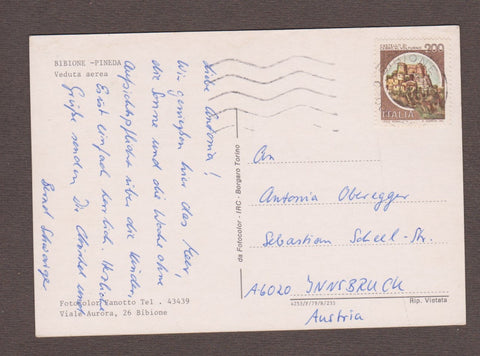 BIBIONE -PINEDA
Veduta aerea
Liebe Antonia!
Wir genießen hier das Meer,
die Sonne und die Woche ohne
Aufsichtspflicht über die Kinder.
Es ist einfach herrlich. Herzliche
Grüße senden Dir Christl und
Bernd
Fotocolor Zanotto Tel . 43439
Viale Aurora, 26 Bibione
da Fotocolor - IRC - Borgaro Torino
200
ITALIA
An
Antonia Oberegger
Sebastian Scheel-Str.
A6020 INNSBRUCK
Austria
Rip. Vietata